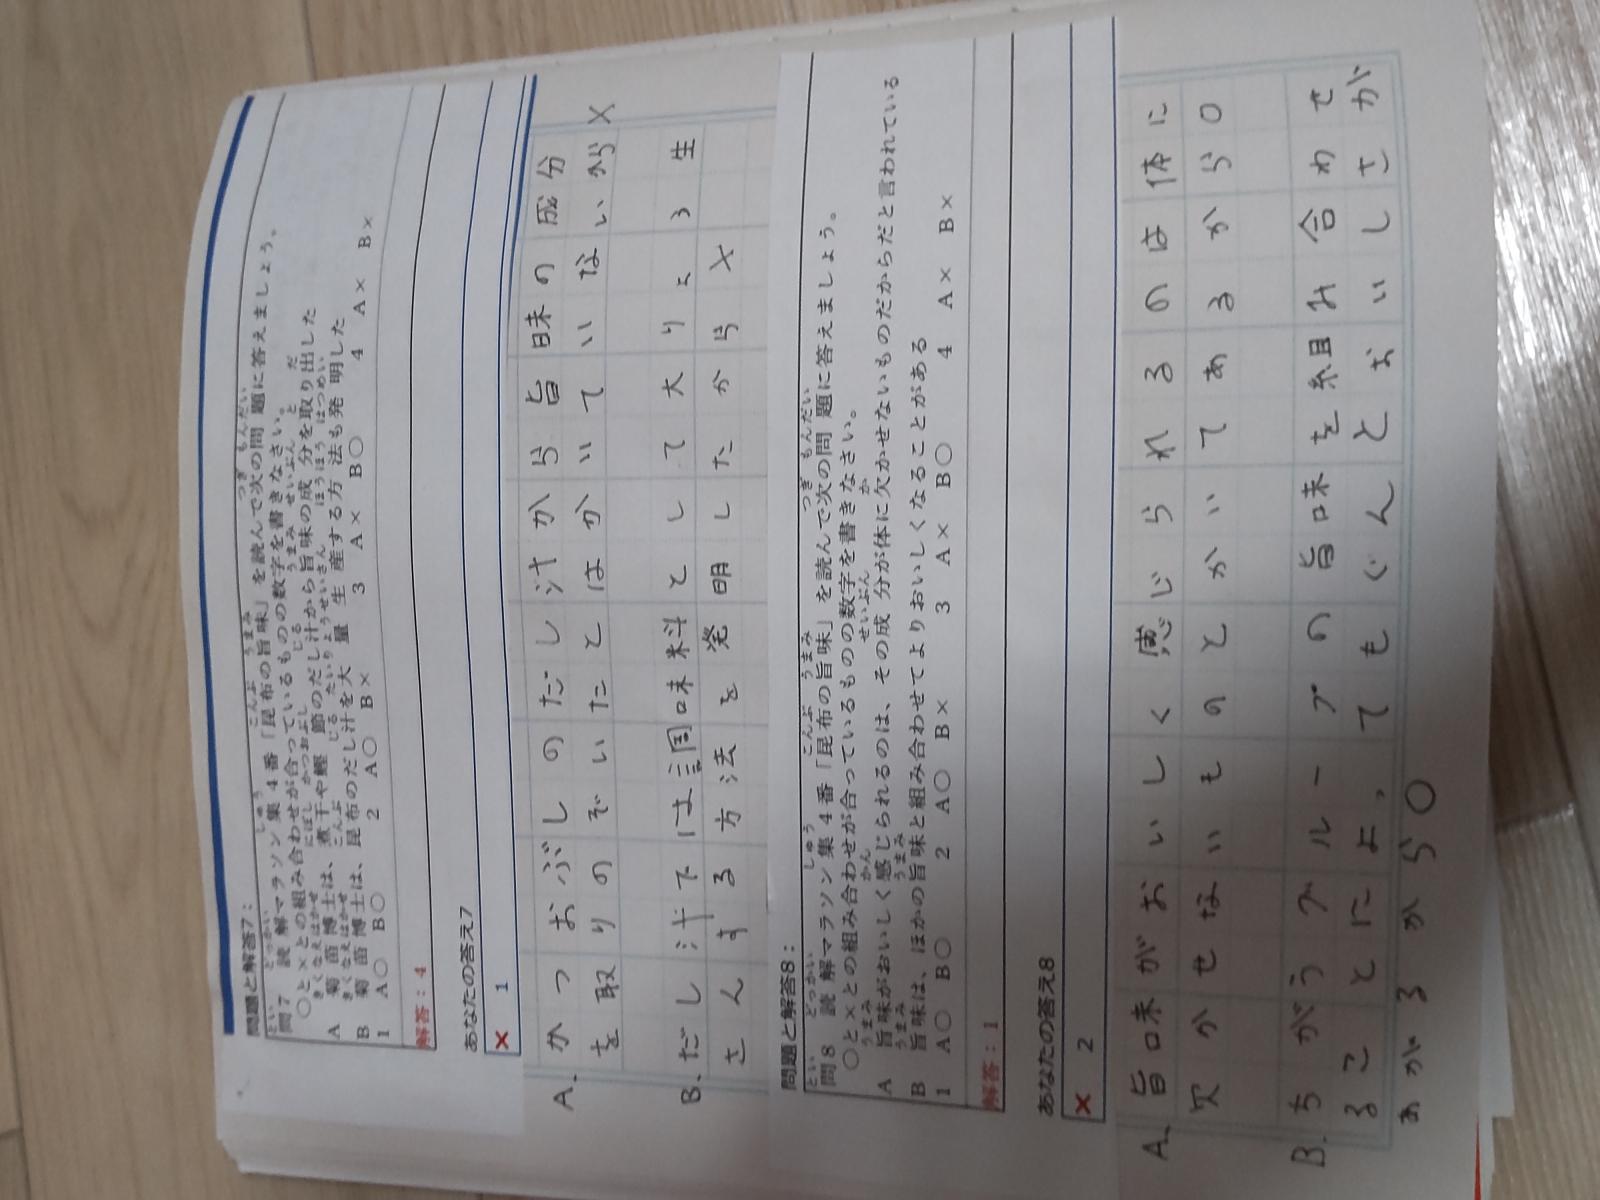 問題と解答7:
問7 読解マラソン集4番「昆布の旨味」を読んで次の問題に答えましょう。
○と×との組み合わせが合っているものの数字を書きなさい。
A 菊苗博士は、煮干や鰹節のだし汁から旨味の成分を取り出した
B 菊苗博士は、昆布のだし汁を大量生産する方法も発明した
1 A○ B○ 2 A○ B× 3 A× B○ 4 A× B×
解答:4
あなたの答え7
× 1
A、かつおぶしのだし汁から旨味の成分
を取りのぞいたとはかいていないから×
B、だし汁では調味料として大りょう生
さんする方法を発明したから×
問題と解答8:
問8 読解マラソン集4番「昆布の旨味」を読んで次の問題に答えましょう。
○と×との組み合わせが合っているものの数字を書きなさい。
A 旨味がおいしく感じられるのは、その成分が体に欠かせないものだからだと言われている
B 旨味は、ほかの旨味と組み合わせてよりおいしくなることがある
1 A○ B○ 2 A○ B× 3 A× B○ 4 A× B×
解答:1
あなたの答え8
× 2
A、旨味がおいしく感じられるのは体に
欠かせないものとかいてあるから○
B、ちがうグループの旨味を組み合わせ
ることによってもぐんとおいしさが
あがるから○